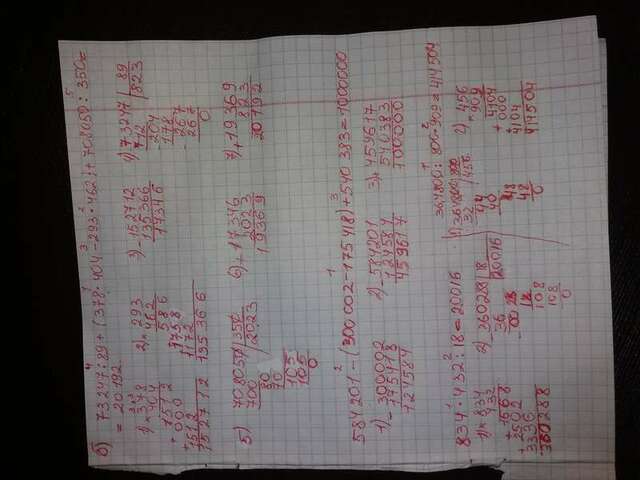 б) 73247:89+(378·404-293·462)+708050:350=
= 20192.
1) ×378
404
+1512
000
+1512
152712
2) ×293
462
586
1758
1172
135366
3) -152712
135366
17346
4) 73247 | 89
712 | 823
-204
178
-267
267
0
5) 708050 | 350
700 | 2023
80
70
105
105
0
6) +17346
2023
19369
7) +19369
823
20192
584201-(300002-175418)+540383=1000000
1) -300002
175418
124584
2) -584201
124584
459617
3) +459617
540383
100000
834·432:18=20016
1) ×834
432
+1668
+2502
3336
360288
2) 360288 | 18
36 | 20016
-0028
18
108
108
0
364800:800·909=414504
1) 364800 | 800
32 | 456
44
40
48
48
0
2) ×456
909
+4104
+000
4104
414504